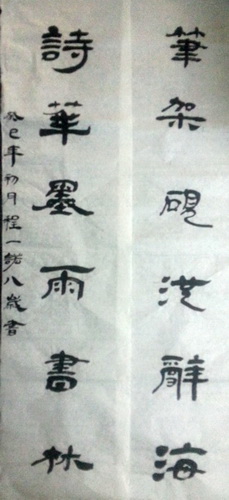 筆架硯洪辭海
詩華墨雨書林
癸巳年初月程一鍩八歲書